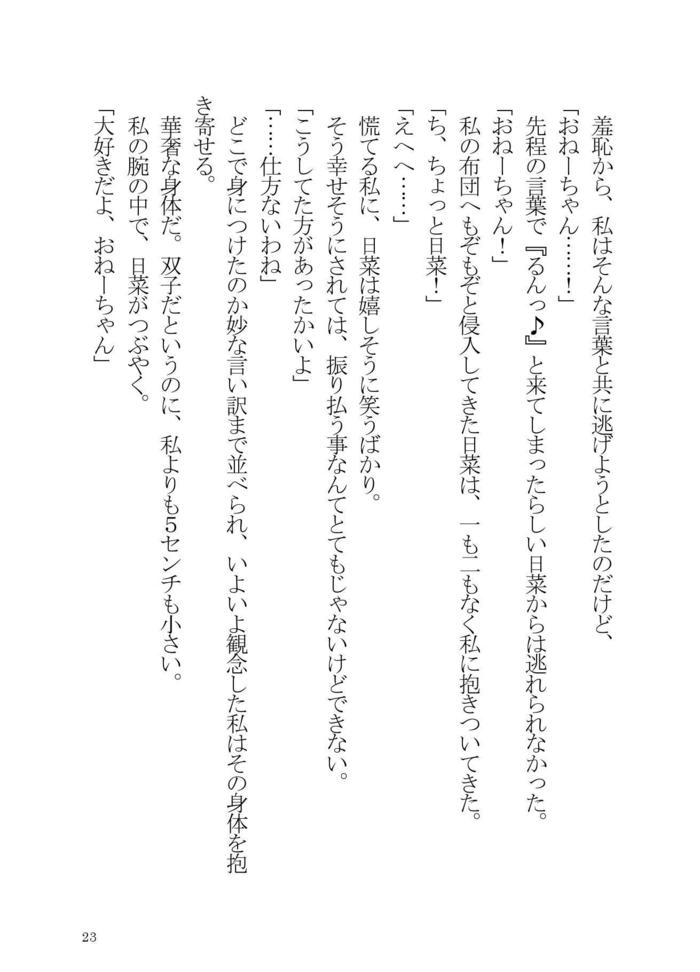 羞恥から、私はそんな言葉と共に逃げようとしたのだけど、
「おねーちゃん……！」
先程の言葉で『るんっ♪』と来てしまったらしい日菜からは逃れられなかった。
「おねーちゃん！」
私の布団へもぞもぞと侵入してきた日菜は、一も二もなく私に抱きついてきた。
「ち、ちょっと日菜！」
「えへへ……」
慌てる私に、日菜は嬉しそうに笑うばかり。
そう幸せそうにされては、振り払う事なんてとてもじゃないけどできない。
「こうしてた方があったかいよ」
「……仕方ないわね」
どこで身につけたのか妙な言い訳まで並べられ、いよいよ観念した私はその身体を抱
き寄せる。
華奢な身体だ。双子だというのに、私よりも５センチも小さい。
私の腕の中で、日菜がつぶやく。
「大好きだよ、おねーちゃん」
23